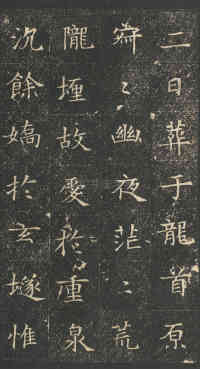 二日葬于龍首原
寂〻幽夜茫〻荒
隴埋故愛於重泉
沉餘嬌於玄隧惟